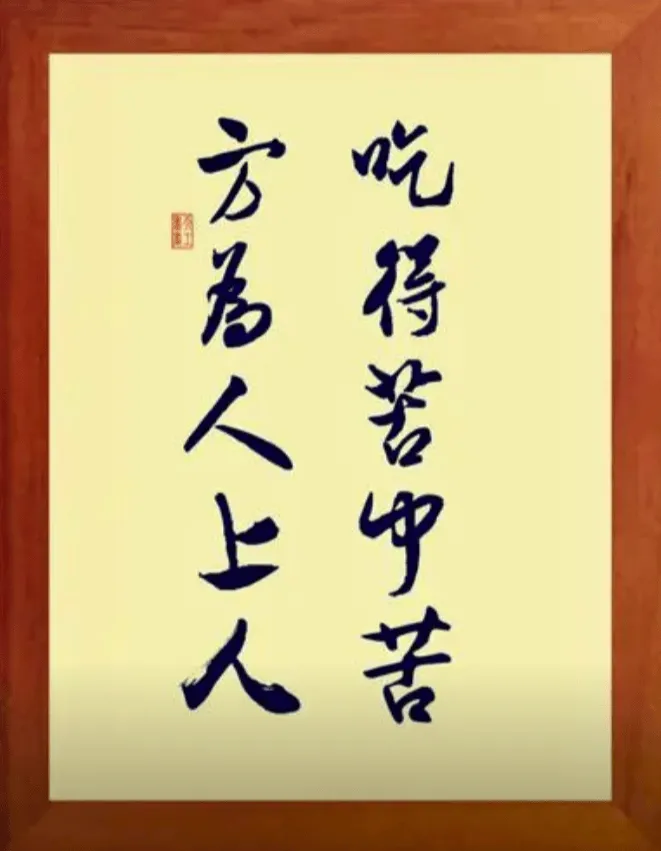 吃得苦中苦
方為人上人